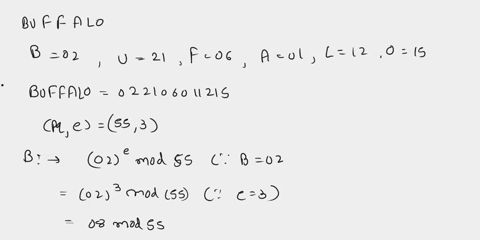 BUFFALO
B = 02 , U = 21 , F = 06 , A = 01 , L = 12 , O = 15
BUFFALO = 02210601 1215
(pq, e) = (55, 3)
B: → (02)^e mod 55 (∵ B = 02
= (02)^3 mod (55) (∵ e = 3)
= 08 mod 55